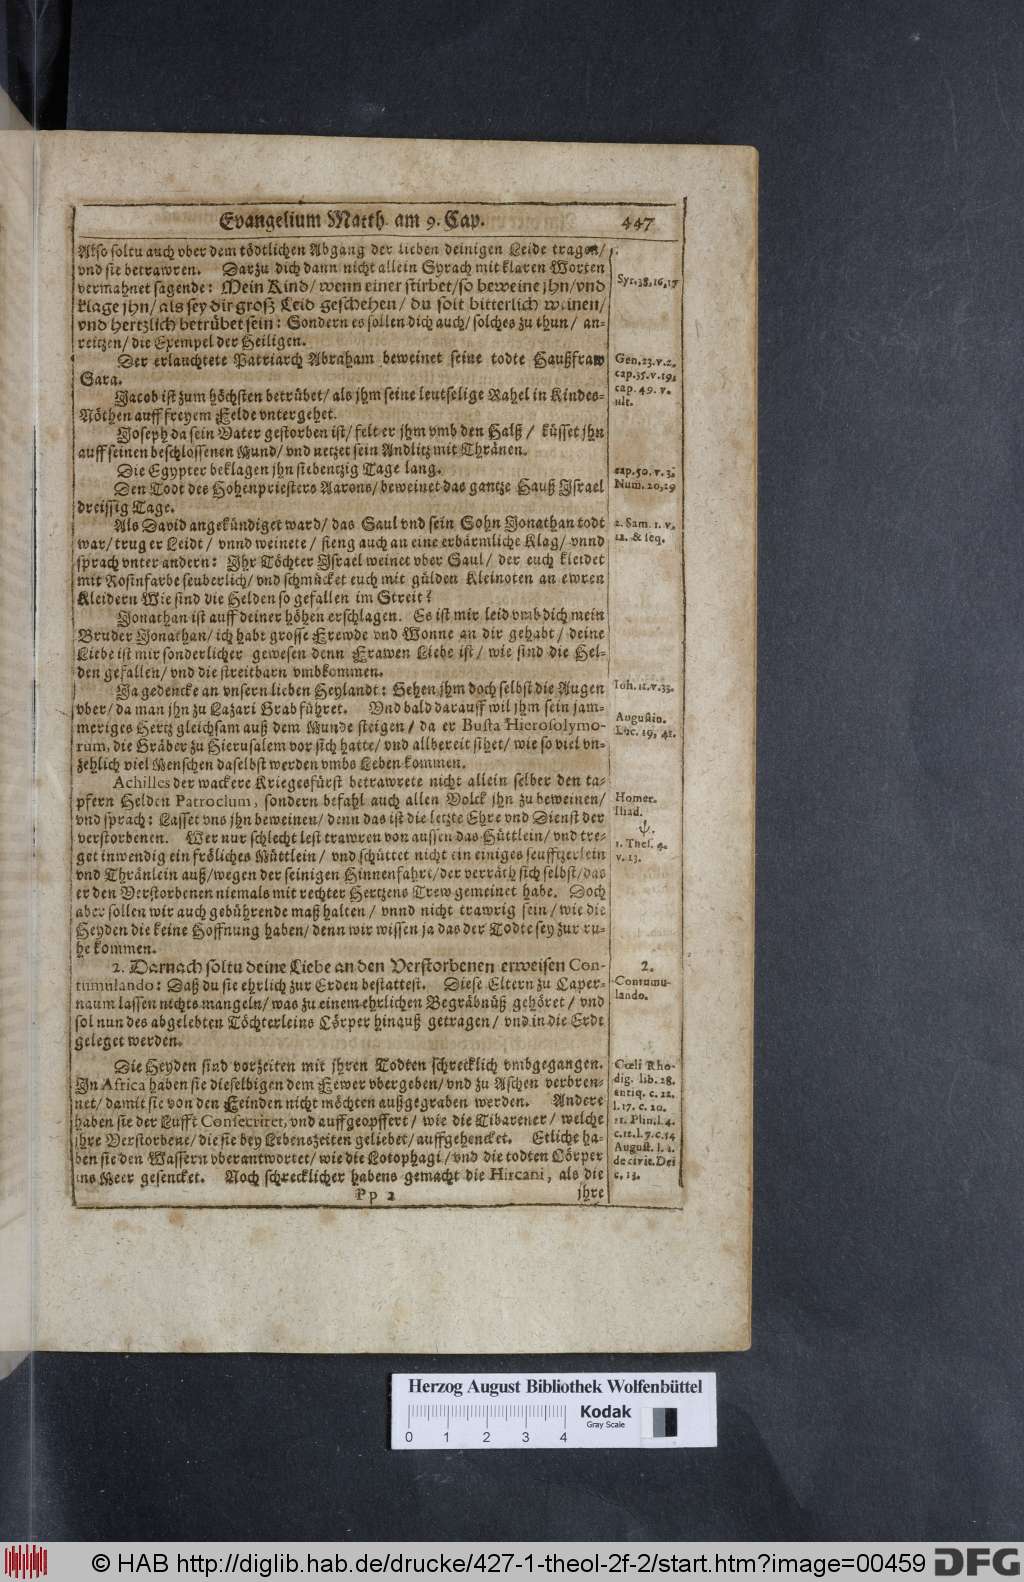 Evangelium Matth. am 9. Cap. 447
Also soltu auch vber dem tödtlichen Abgang der lieben deinigen Leide tragen/
vnd sie betrawren. Darzu dich dann nicht allein Syrach mit klaren Worten
vermahnet sagende: Mein Kind/ wenn einer stirbet/ so beweine jhn/ vnd
klage jhn/ als sey dir groß Leid geschehen/ du solt bitterlich weinen/
vnd hertzlich betrübet sein: Sondern es sollen dich auch/ solches zu thun/ an-
reitzen/ die Exempel der Heiligen.
Syr. 38, 16, 17
Der erlauchtete Patriarch Abraham beweinet seine todte Haußfraw
Sara.
Jacob ist zum höchsten betrübet/ als jhm seine leutselige Rahel in Kindes-
Nöthen auff freyem Felde vntergehet.
Gen. 23. v. 2.
cap. 35. v. 19,
cap. 49. v.
ult.
Joseph da sein Vater gestorben ist/ felt er jhm vmb den Halß/ küsset jhn
auff seinen beschlossenen Mund/ vnd netzet sein Andlitz mit Thränen.
Die Egypter beklagen jhn siebentzig Tage lang.
Den Todt des Hohenpriesters Aarons/ beweinet das gantze Hauß Israel
dreissig Tage.
cap. 50. v. 3.
Num. 20, 29
Als David angekündiget ward/ das Saul vnd sein Sohn Jonathan todt
war/ trug er Leidt/ vnnd weinete/ fieng auch an eine erbärmliche Klag/ vnnd
sprach vnter andern: Ihr Töchter Israel weinet vber Saul/ der euch kleidet
mit Rosinfarbe seuberlich/ vnd schmücket euch mit gülden Kleinoten an ewren
Kleidern Wie sind die Helden so gefallen im Streit?
2. Sam. 1. v.
12. & seq.
Jonathan ist auff deiner höhen erschlagen. Es ist mir leid vmb dich mein
Bruder Jonathan/ ich habe grosse Frewde vnd Wonne an dir gehabt/ deine
Liebe ist mir sonderlicher gewesen denn Frawen Liebe ist/ wie sind die Hel-
den gefallen/ vnd die streitbarn vmbkommen.
Ja gedencke an vnsern lieben Heylandt: Gehen jhm doch selbst die Augen
vber/ da man jhn zu Lazari Grab führet. Vnd bald darauff wil jhm sein jam-
meriges Hertz gleichsam auß dem Munde steigen/ da er Busta Hierosolymo-
rum, die Gräber zu Hierusalem vor sich hatte/ vnd allbereit sihet/ wie so viel vn-
zehlich viel Menschen daselbst werden vmbs Leben kommen.
Ioh. 11. v. 35.
Augustin.
Luc. 19, 41.
Achilles der wackere Kriegesfürst betrawrete nicht allein selber den ta-
pfern Helden Patroclum, sondern befahl auch allen Volck jhn zu beweinen/
vnd sprach: Lasset vns jhn beweinen/ denn das ist die letzte Ehre vnd Dienst der
verstorbenen. Wer nur schlecht lest trawren von aussen das Hüttlein/ vnd tre-
get inwendig ein fröliches Müttlein/ vnd schüttet nicht ein einiges seufftzerlein
vnd Thränlein auß/ wegen der seinigen Hinnenfahrt/ der verräth sich selbst/ das
er den Verstorbenen niemals mit rechter Hertzens Trew gemeinet habe. Doch
aber sollen wir auch gebührende maß halten/ vnnd nicht trawrig sein/ wie die
Heyden die keine Hoffnung haben/ denn wir wissen ja das der Todte sey zur ru-
he kommen.
Homer.
Iliad.
ψ.
1. Thes. 4.
v. 13.
2. Darnach soltu deine Liebe an den Verstorbenen erweisen Con-
tumulando: Daß du sie ehrlich zur Erden bestattest. Diese Eltern zu Caper-
naum lassen nichts mangeln/ was zu einem ehrlichen Begräbnüß gehöret/ vnd
sol nun des abgelebten Töchterleins Cörper hinauß getragen/ vnd in die Erde
geleget werden.
2.
Contumu-
lando.
Die Heyden sind vorzeiten mit jhren Todten schrecklich vmbgegangen.
In Africa haben sie dieselbigen dem Fewer vbergeben/ vnd zu Aschen verbren-
net/ damit sie von den Feinden nicht möchten außgegraben werden. Andere
haben sie der Lufft Consecriret, vnd auffgeopffert/ wie die Tibarener/ welche
jhre Verstorbene/ die sie bey Lebenszeiten geliebet/ auffgehencket. Etliche ha-
ben sie den Wassern vberantwortet/ wie die Lotophagi/ vnd die todten Cörper
ins Meer gesencket. Noch schrecklicher habens gemacht die Hircani, als die
Cœli Rho-
dig. lib. 28.
antiq. c. 22.
l. 17. c. 20.
21. Plin. l. 4.
c. 12. l. 7. c. 54
August. l. 1.
de civit. Dei
c. 13.
Pp 2 jhre
Herzog August Bibliothek Wolfenbüttel
Kodak
Gray Scale
0 1 2 3 4
© HAB http://diglib.hab.de/drucke/427-1-theol-2f-2/start.htm?image=00459
DFG